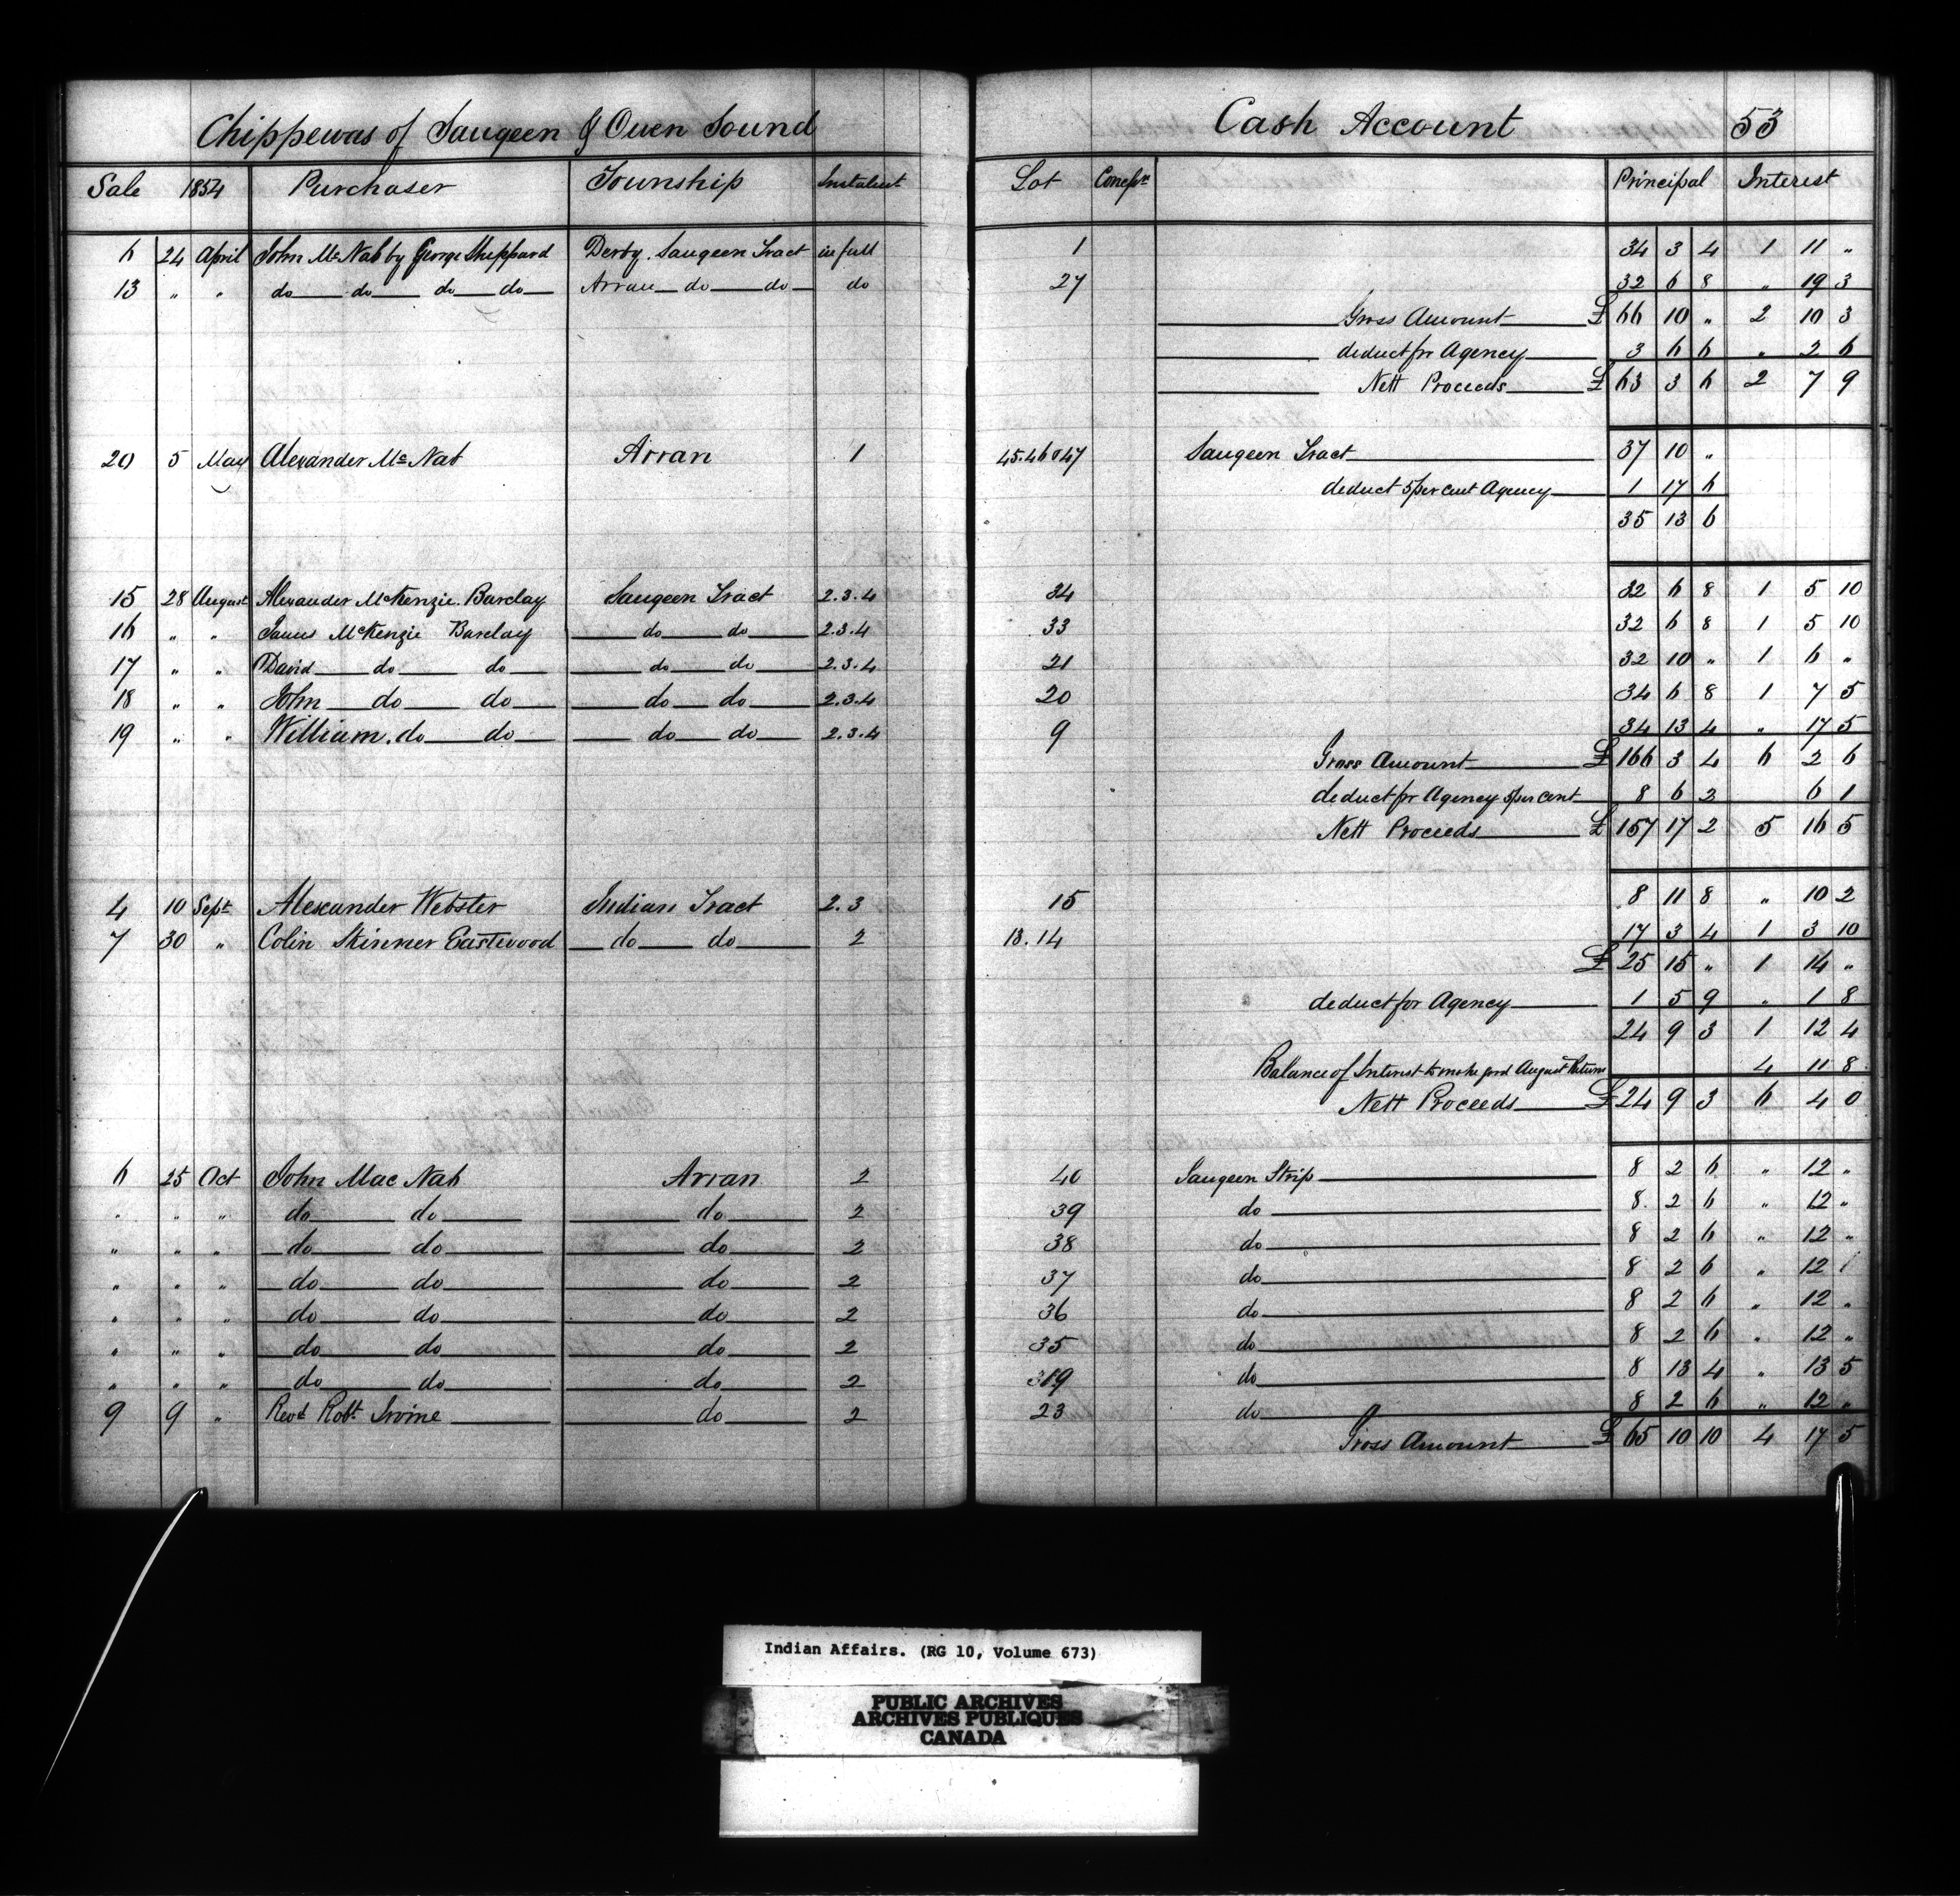 Chippewas of Saugeen & Owen Sound Cash Account 53
Sale 1854 Purchaser Township Instalmt Lot Concessn Principal Interest
6 24 April John McNab by George Sheppard Derby. Saugeen Tract in full 1 34 3 4 1 11 "
13 " " do do do do Arran do do do 27 32 6 8 " 19 3
Gross Amount £ 66 10 " 2 10 3
deduct for Agency 3 6 6 " 2 6
Nett Proceeds £ 63 3 6 2 7 9
20 5 May Alexander McNab Arran 1 45.46 & 47 Saugeen Tract 37 10 "
deduct 5 per cent Agency 1 17 6
35 13 6
15 28 August Alexander McKenzie. Barclay Saugeen Tract 2.3.4 34 32 6 8 1 5 10
16 " " James McKenzie Barclay do do 2.3.4 33 32 6 8 1 5 10
17 " " David do do do do 2.3.4 21 32 10 " 1 6 "
18 " " John do do do do 2.3.4 20 34 6 8 1 7 5
19 " " William. do do do do 2.3.4 9 34 13 4 " 17 5
Gross Amount £ 166 3 4 6 2 6
deduct for Agency 5 per cent 8 6 2 6 1
Nett Proceeds £ 157 17 2 5 16 5
4 10 Sept Alexander Webster Indian Tract 2.3 15 8 11 8 " 10 2
7 30 " Colin Skinner Eastwood do do 2 13.14 17 3 4 1 3 10
£ 25 15 " 1 14 "
deduct for Agency 1 5 9 " 1 8
24 9 3 1 12 4
Balance of Interest to make good August Return 4 11 8
Nett Proceeds £ 24 9 3 6 4 0
6 25 Oct John Mac Nab Arran 2 40 Saugeen Strip 8 2 6 " 12 "
" " " do do do 2 39 do 8 2 6 " 12 "
" " " do do do 2 38 do 8 2 6 " 12 "
" " " do do do 2 37 do 8 2 6 " 12 "
" " " do do do 2 36 do 8 2 6 " 12 "
" " " do do do 2 35 do 8 2 6 " 12 "
" " " do do do 2 19 do 8 13 4 " 13 5
9 9 " Revd Robt Irvine do 2 23 do 8 2 6 " 12 "
Gross Amount £ 65 10 10 4 17 5
Indian Affairs. (RG 10, Volume 673)
PUBLIC ARCHIVES
ARCHIVES PUBLIQUES
CANADA